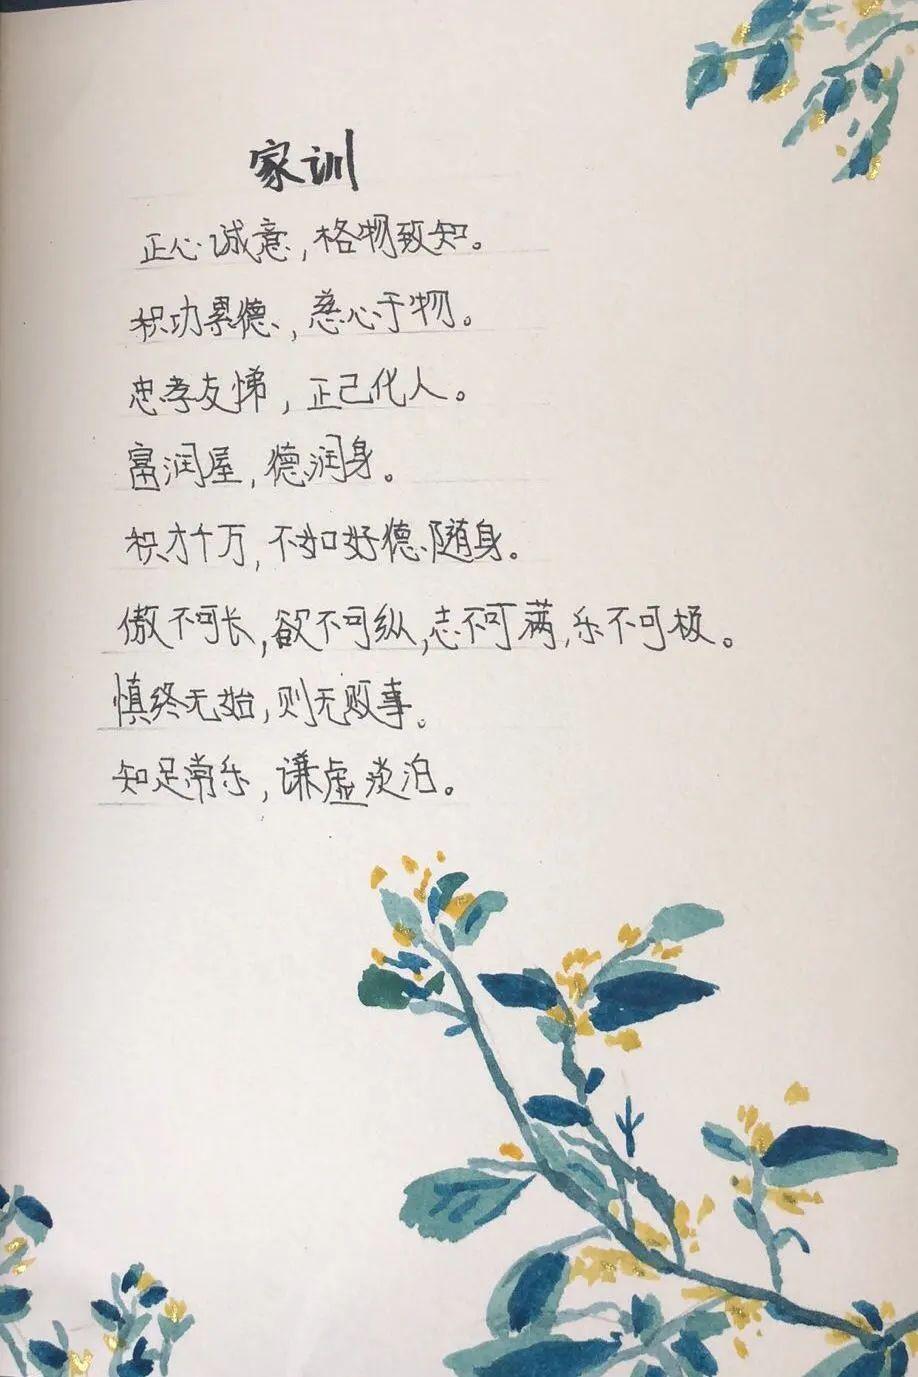 家训
正心诚意,格物致知。
积功累德,慈心于物。
忠孝友悌,正己化人。
富润屋,德润身。
积才千万,不如好德随身。
傲不可长,欲不可纵,志不可满,乐不可极。
慎终无始,则无败事。
知足常乐,谦虚淡泊。